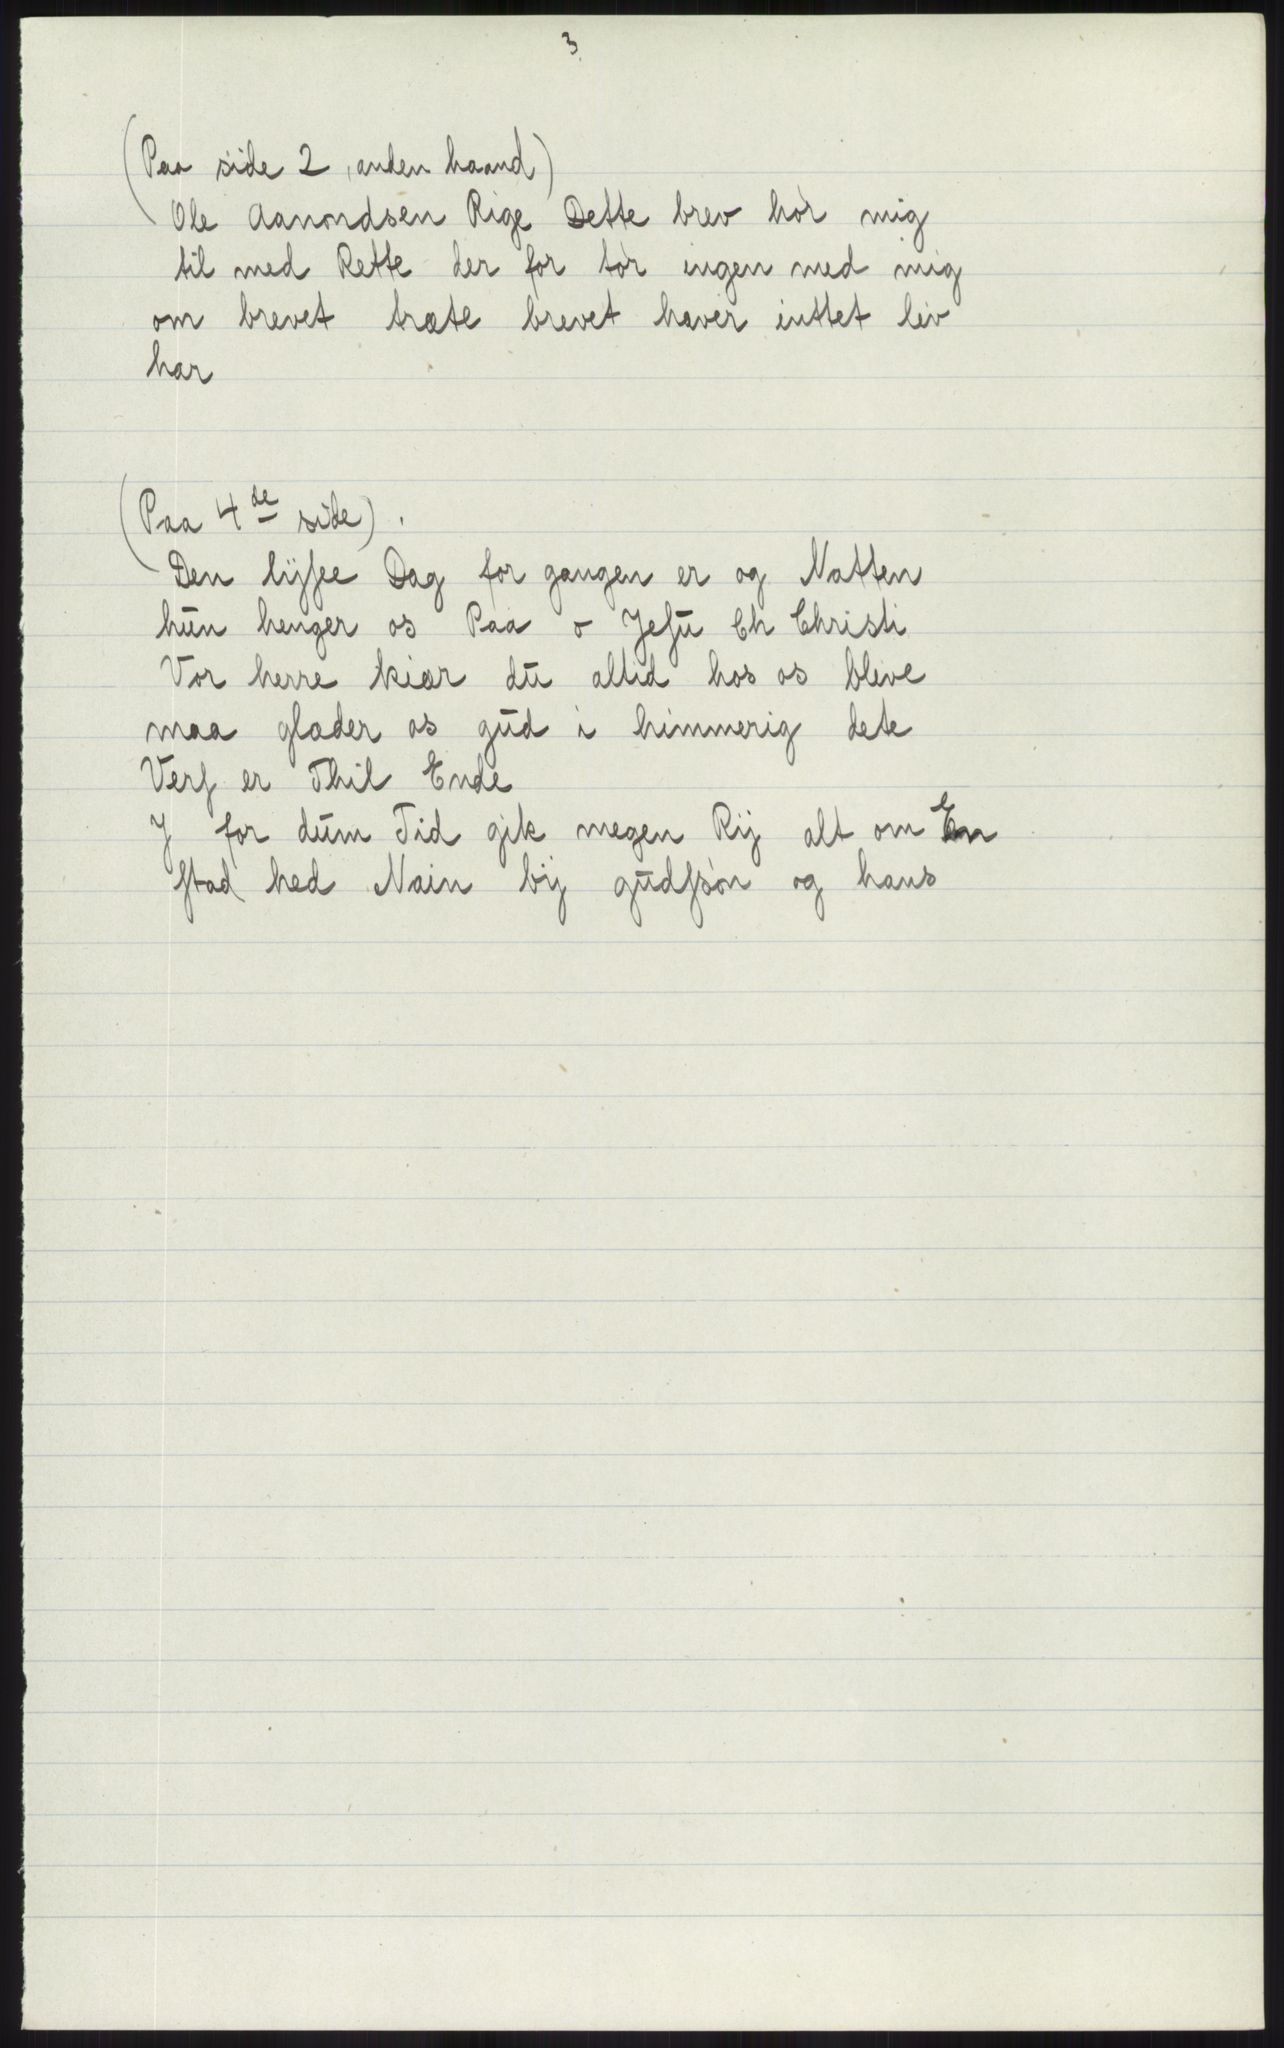 3
(Paa side 2, anden haand)
Ole Aanondsen Rige Dette brev hør mig
til med Rette der for tør ingen med mig
om brevet træte brevet haver inttet liv
har
(Paa 4de side).
Den lijsee Dag for gangen er og Natten
hun henger os Paa o Jesu Ch Christi
Vor herre kiær du altid hos os bleve
maa glæder os gud i himmerig dete
Vers er Thil Ende
J for dum Tid gik megen Rij alt om En
stad hed Nain bij gudssøn og hans